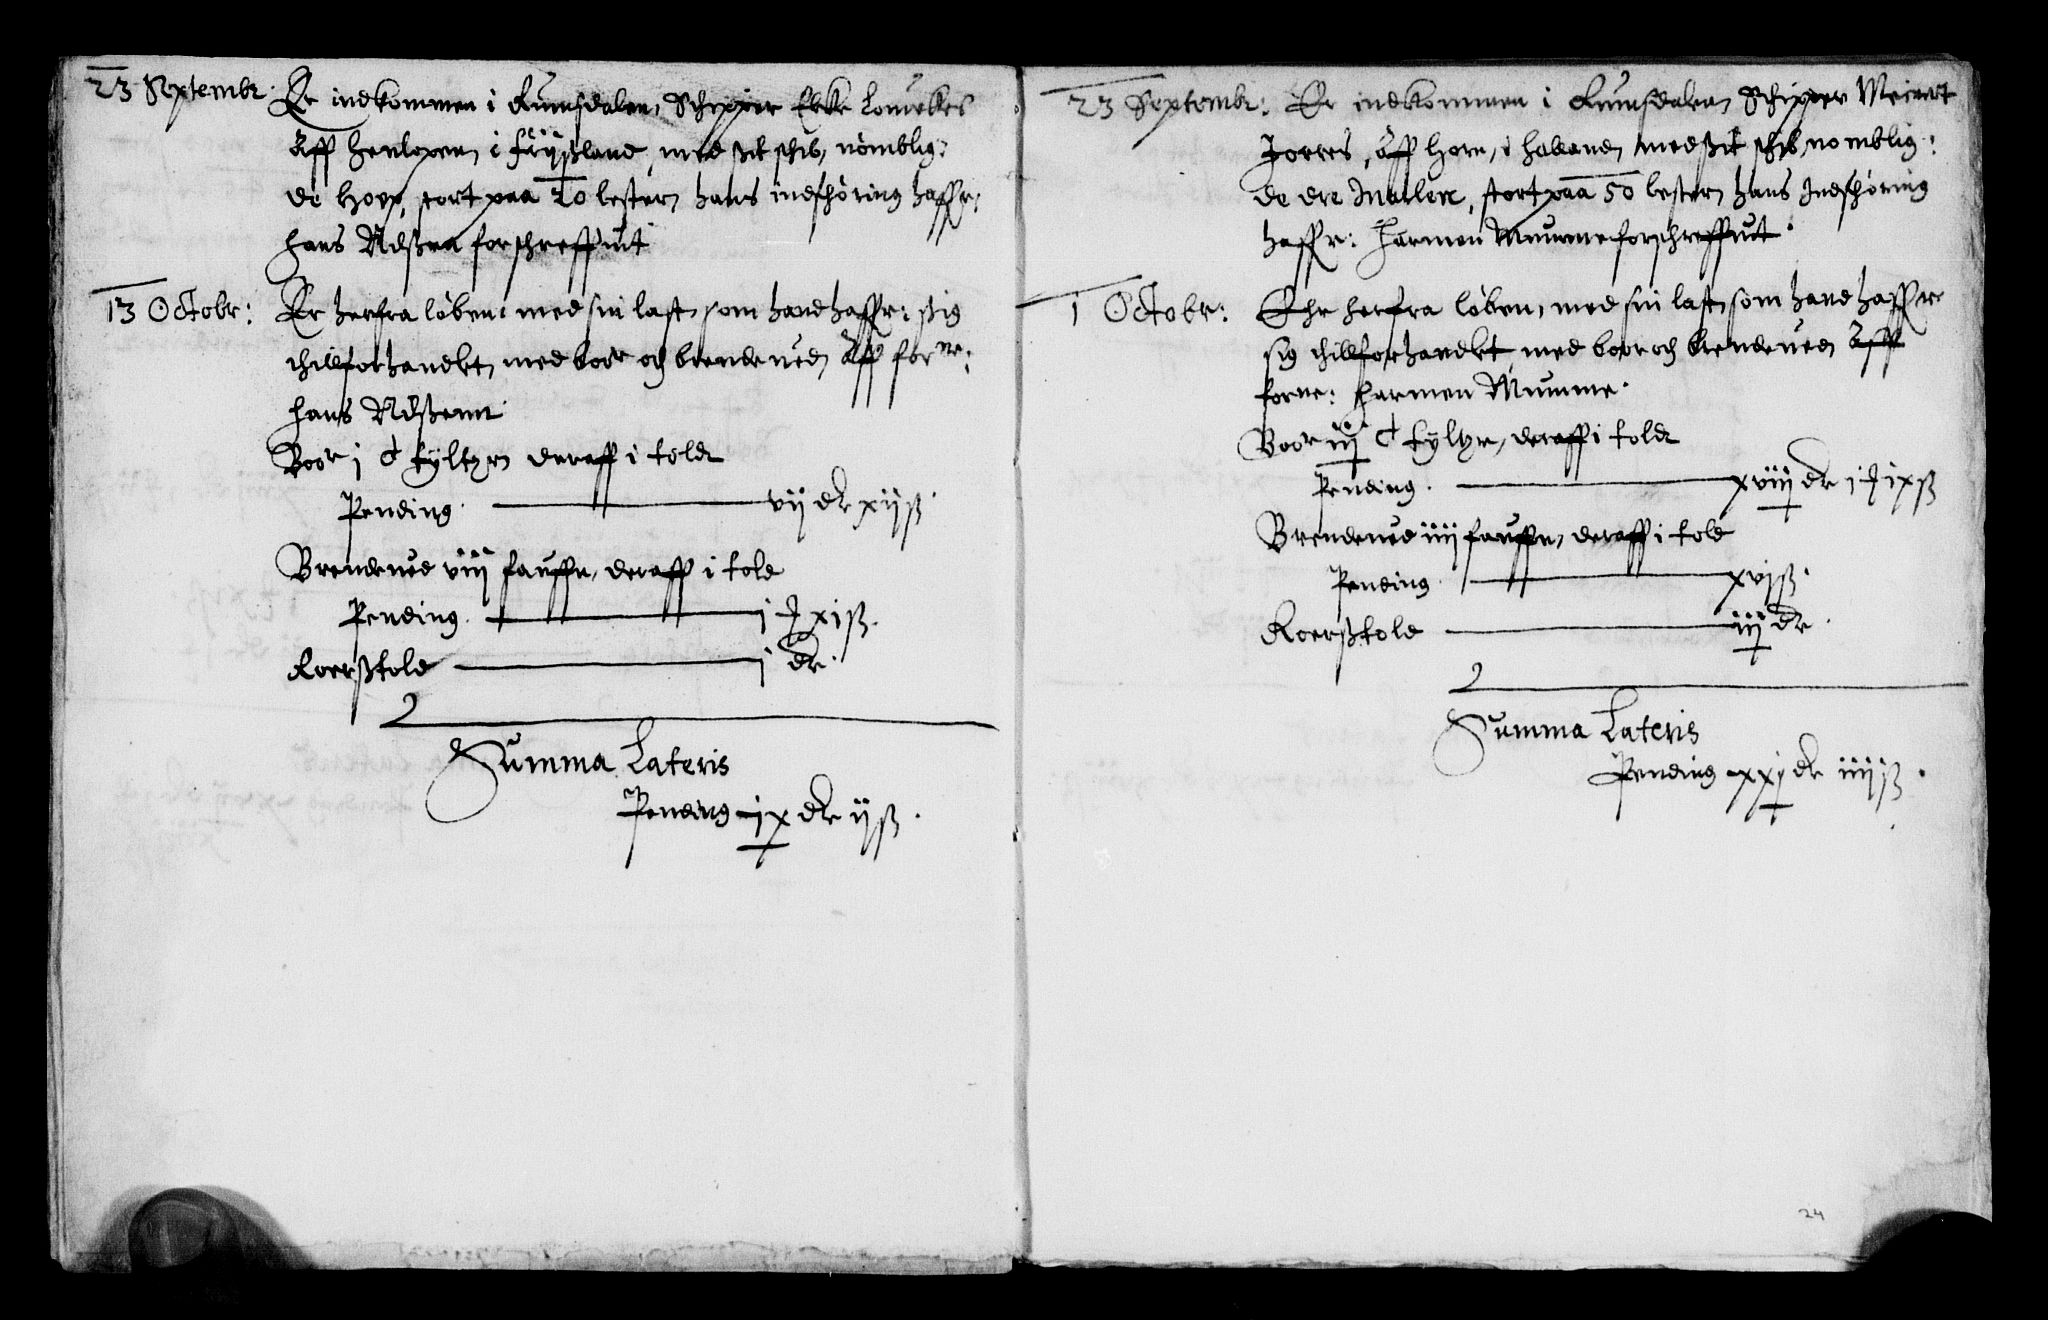 23 Septembr: Er indkommen i Rumsdalen, Schipper Ebbe Louvekes
Aff Henlopen, i Frijßland, med sit schib, nömblig:
de Hoep, stort paa 20 lester, hans indschöring haffr:
Hans Nilßen forschreffuit
13 Octobr: Er herfra löben: med sin last, som hand haffr: ßig
thillforhandlet, med boor och brendeued, Aff forne:
Hans Nilßenn
Boor j C tyltger deraff i told
Pending vij dr xij ß
Brendeued viij fauffne, deraff i told
Pending j ꝭ xi ß.
Roerßtold j dr.
Summa Lateris
Pending ix dr ij ß.
23 Septembr: Er indkommen i Rumsdalen, Schipper Meinert
Jorres, Aff Horn, i Holland, med ßit schib, nomblig:
de dre Mollere, stort paa 50 lester, hans Indschöring
haffr: Harmen Mumme forschreffuit.
1 Octobr: Ehr herfra löben, med sin last, som hand haffr
sig thillforhandlet, med boor och brendeued Aff
forne: Harmen Mumme.
Boor iij C tyltgr, deraff i told
Pending xviij dr i ꝭ ix ß
Brendeued iiij fauffne, deraff i told
Pending xvj ß.
Roerßtold iij dr.
Summa Lateris
Pending xxj dr iiij ß.
24